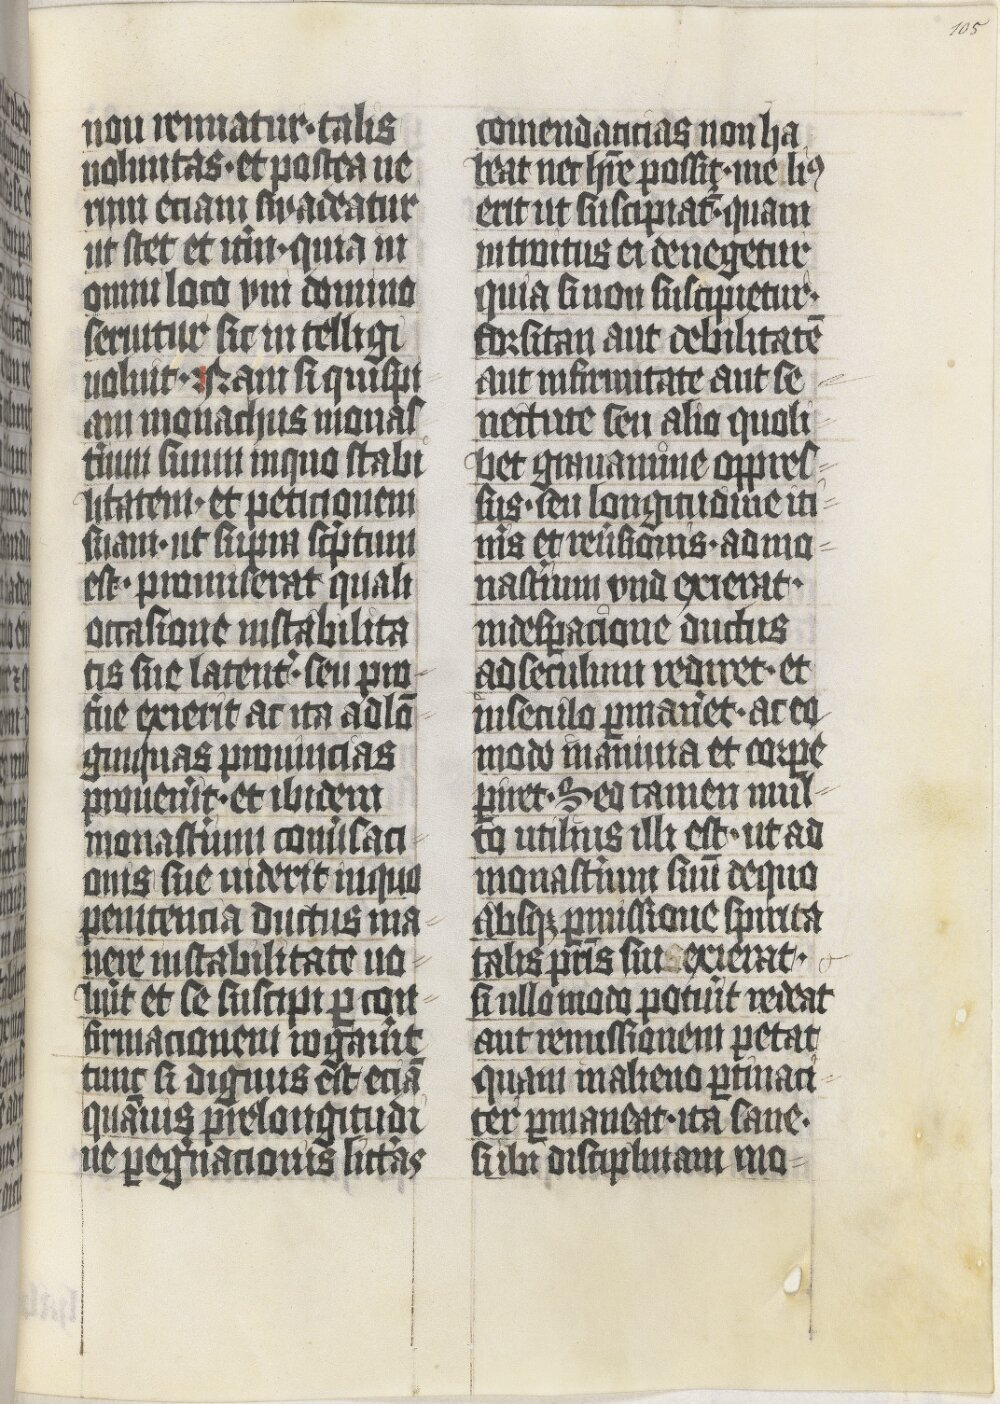 105
non rennatur·talis
voluntas·et postea ve
niri eciam svadeatur
ut stet et item·quia in
omni loco vni domino
seruitur sic in telligi
voluit·Nam si quispi
am monachus monas
terium suum inquo stabi
litatem·et peticionem
suam·ut supra scriptum
est·promiserat quali
occasione instabilita
tis sue latenter·seu pro
terue exierit ac ita adlō
ginquas prouincias
prouenerit·et ibidem
monasterium conuersaci
onis sue viderit inquo
penitencia ductus ma
nere instabilitate vo
luerit et se suscipi p con
firmacionem rogauerit
tunc si dignus est eciā
quāuis prelongitudi
ne pegrinacionis litteras
comendaticias non ha
beat nec hr̄e possit·meli⁹
erit ut suscipiatr·quam
introitus ei denegetur
quia si non suscipietur·
forsitan aut debilitatē
aut infirmitate aut se
nectute seu alio quoli
bet grauamine oppres
sus·seu longitudine iti
neris et reuersionis·ad mo
nasterium vnd exierat·
indesperacione ductus
ad seculum rediret·et
inseculo pmaneret·ac eo
modo in anima et corpe
piret·Sed tamen mul
to utilius illi est·ut ad
monasterium suū dequo
absqʒ pmissione spirita
talis pr̄is sui exierat·
si ullo modo potuerit redeat
aut remissionem petat
quam in alieno ptinaci
ter pmaneat·ita sane·
si ibi disciplinam mo